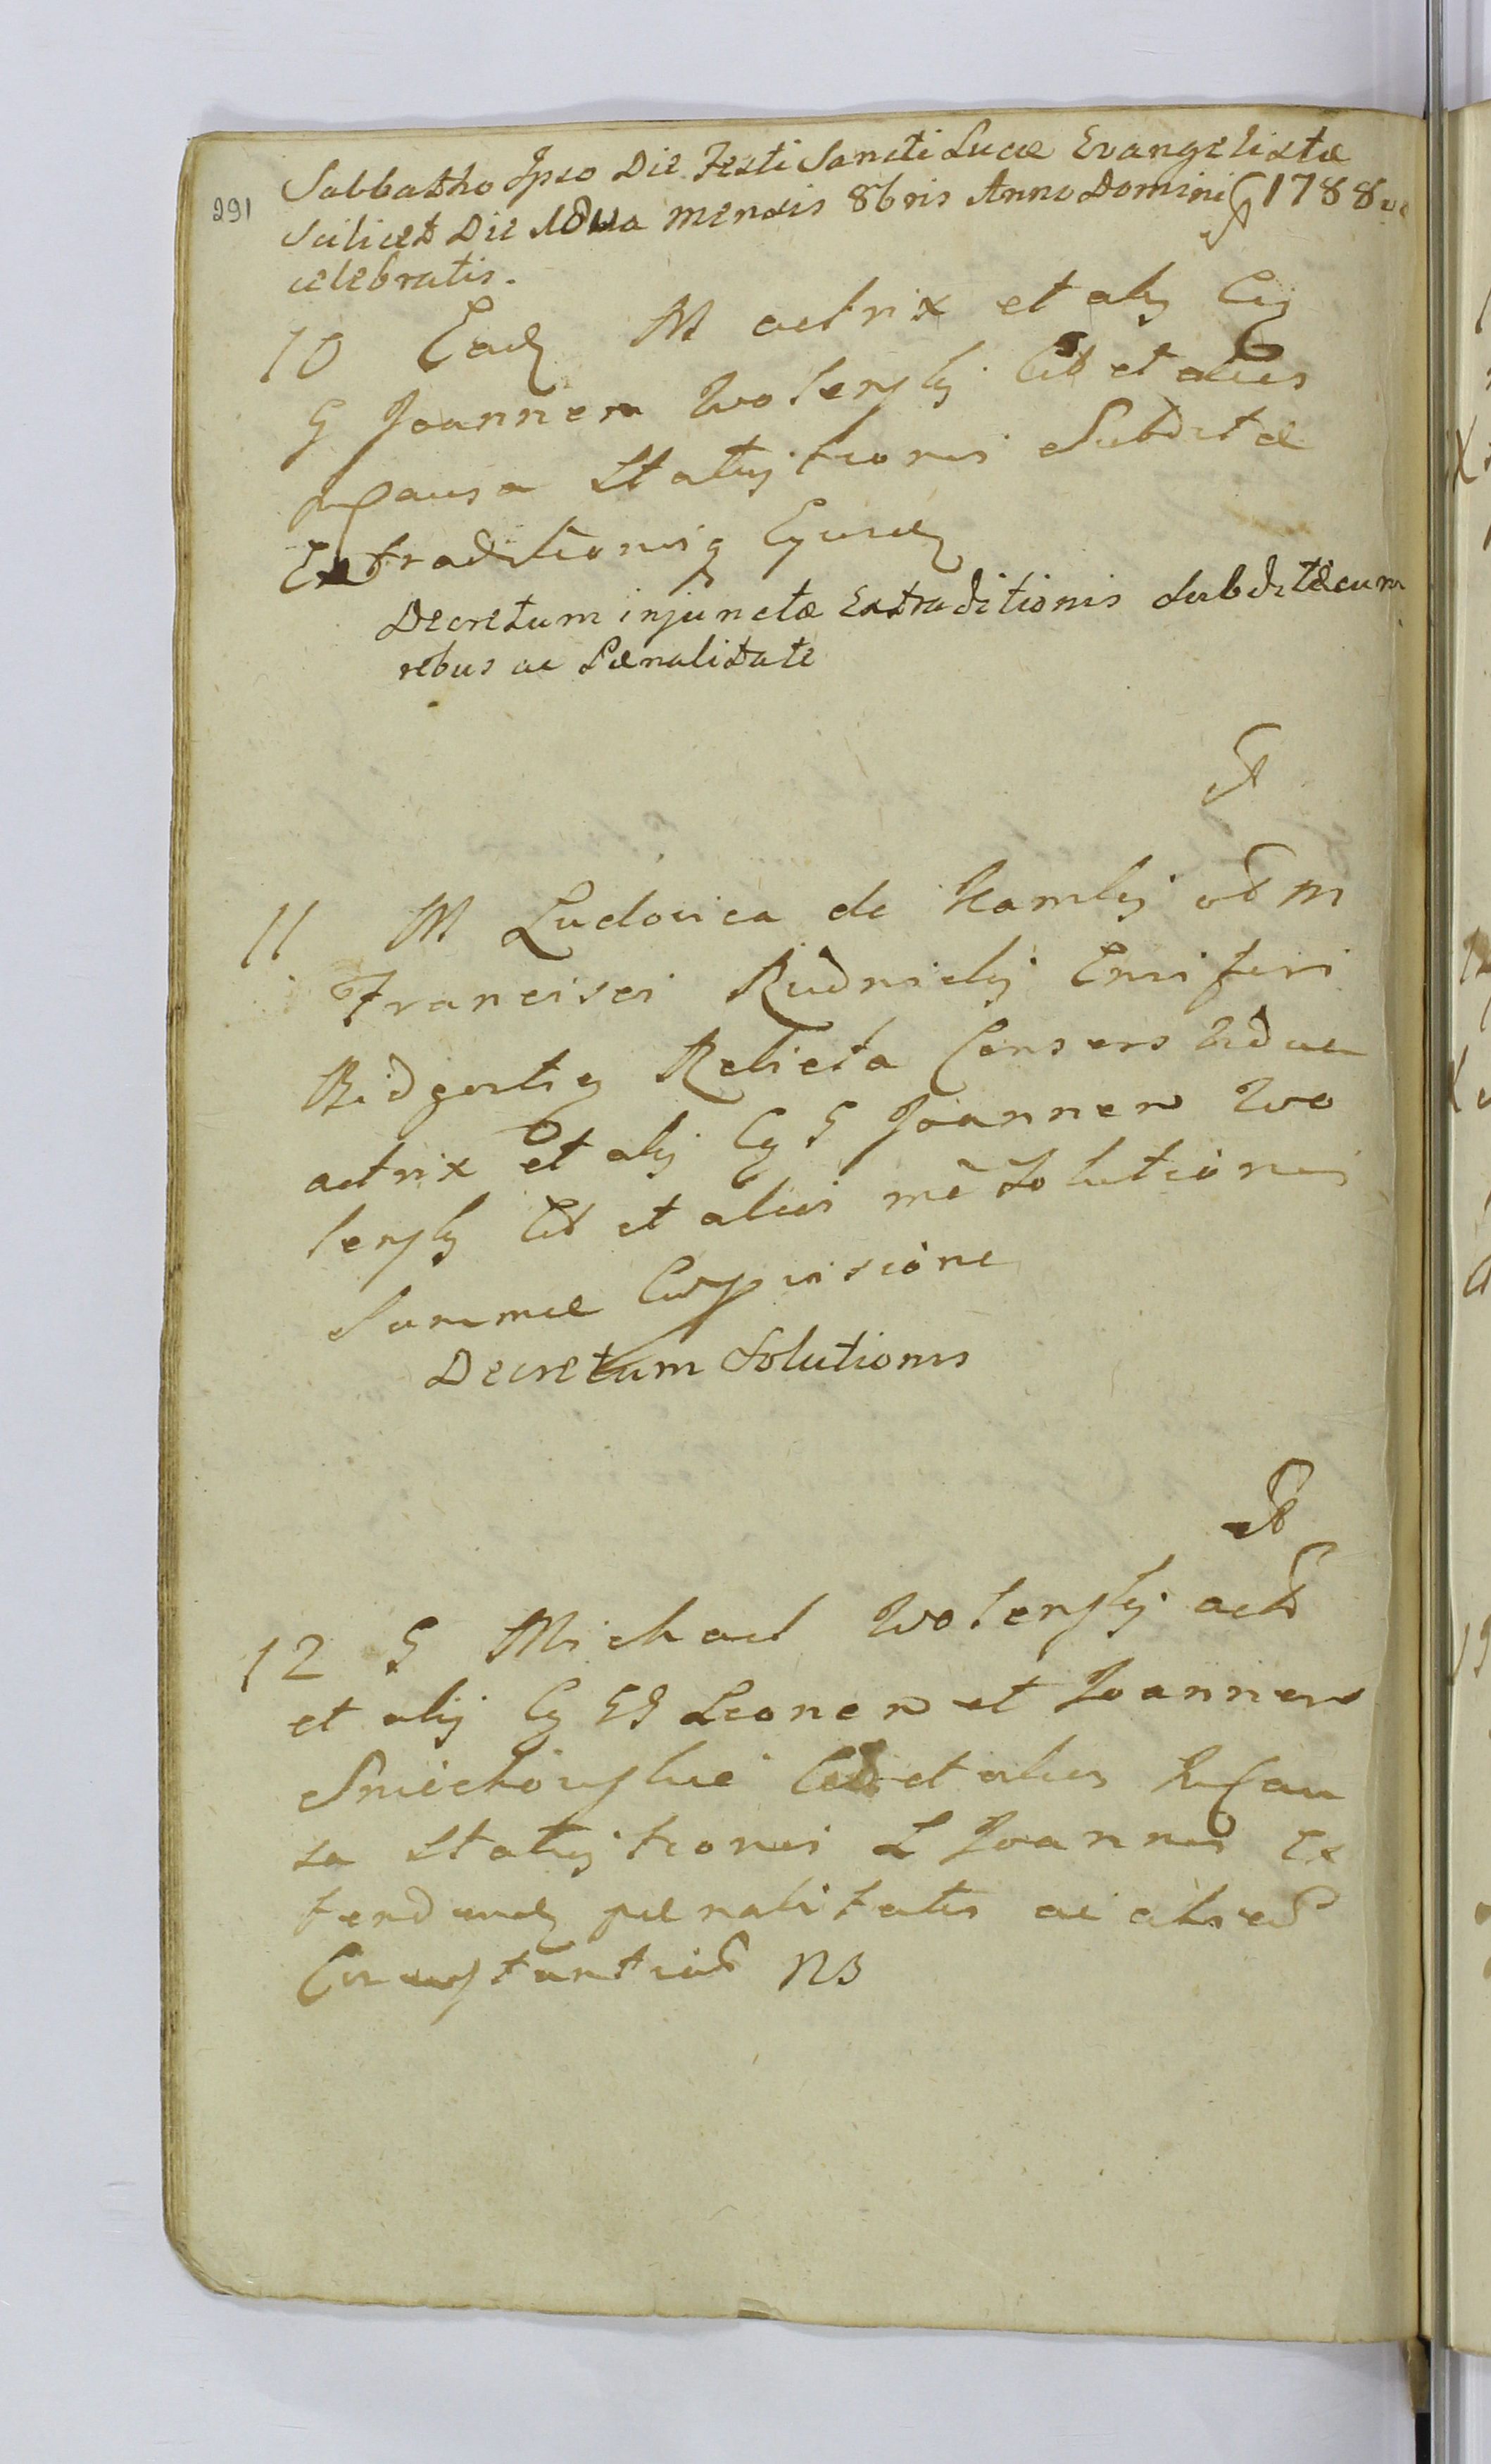 291
Sabbatho Ipso Die Festi Sancti Lucæ Evangelistæ
Scilicet Die 18va mensis 8bris Anno Domini 1788vo
celebratis.
10 Ead M actrix et alij C
G Joannem Wolensky Cit et alios
causa Statuitionis Subditæ
Extraditionisq Ejusd
Decretum injunctæ Extraditionis Subditæ cum
rebus ac Pænalitate
11 M Ludovica de Kamky M
Francisci Rudnicky Ensiferi
Bidgostig Relicta Consors Vidua
actrix et alij C G Joannem Wo
lensky Cit et alios Solutionis
Summæ
Decretum Solutionis
12 G Michael Wolensky act
et alij C GG Leonem et Joannem
Sniechowskie Cit et alios cau
sa Statuitionis L Joannis Ex
tend pænalitatis ac
NB